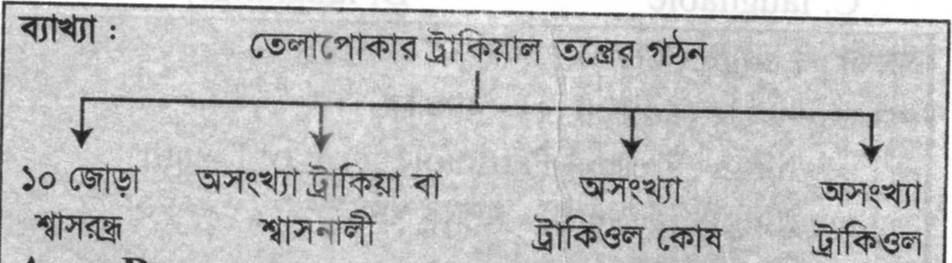 ব্যাখ্যা :
তেলাপোকার ট্রাকিয়াল তন্ত্রের গঠন
১০ জোড়া শ্বাসরন্ধ্র
অসংখ্যা ট্রাকিয়া বা শ্বাসনালী
অসংখ্যা ট্রাকিওল কোষ
অসংখ্যা ট্রাকিওল